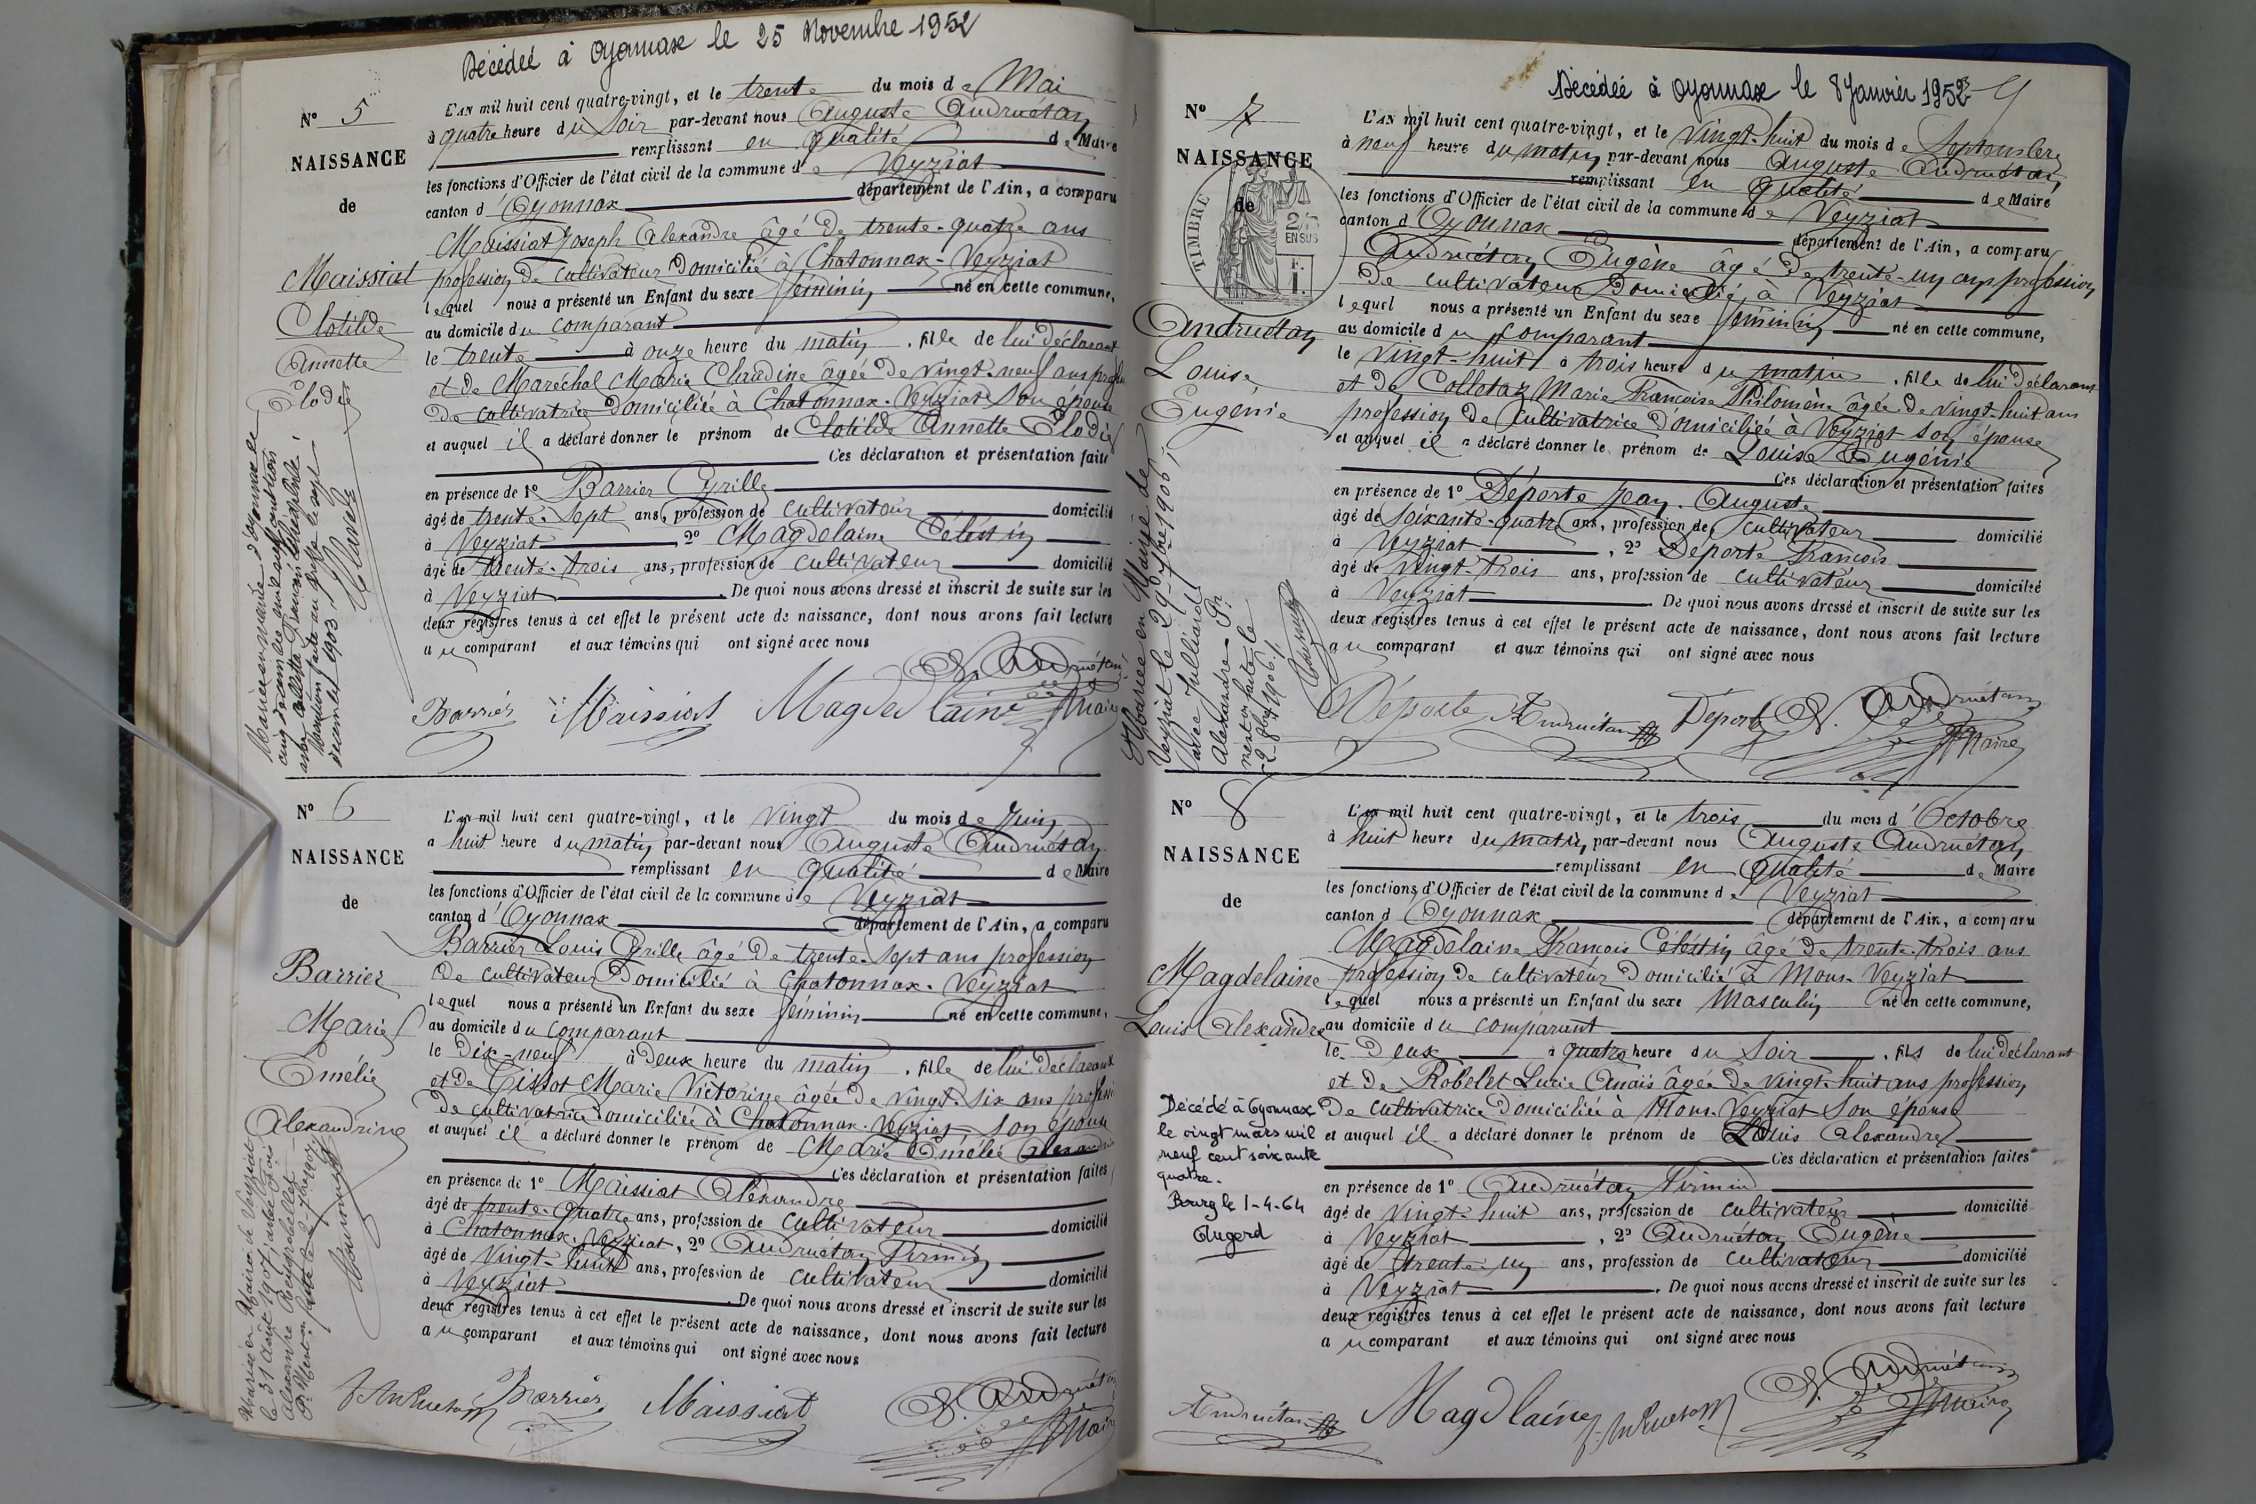 Décédée à Oyonnax le 25 Novembre 1952
N° 5
NAISSANCE
de
Maissiat
Clotilde
Annette
Élodie
L'AN mil huit cent quatre-vingt, et le trente du mois de Mai
à quatre heure du soir par-devant nous Auguste Andruétan
remplissant en qualité de Maire
les fonctions d'Officier de l'état civil de la commune de Veyziat
canton d'Oyonnax département de l'Ain, a comparu
Maissiat Joseph Alexandre âgé de trente-quatre ans
profession de cultivateur domicilié à Chatonnax-Veyziat
lequel nous a présenté un Enfant du sexe féminin né en cette commune,
au domicile du comparant
le trente à onze heure du matin, fille de lui déclarant
et de Maréchal Marie Claudine âgée de vingt-neuf ans
de cultivatrice domiciliée à Chatonnax-Veyziat son épouse
et auquel il a déclaré donner le prénom de Clotilde Annette Élodie
Ces déclaration et présentation faite
en présence de 1° Barrier Cyrille
âgé de trente-sept ans, profession de cultivateur domicilié
à Veyziat 2° Magdelaine Célestin
âgé de trente-trois ans, profession de cultivateur domicilié
à Veyziat. De quoi nous avons dressé et inscrit de suite sur les
deux registres tenus à cet effet le présent acte de naissance, dont nous avons fait lecture
au comparant et aux témoins qui ont signé avec nous
Barrier Maissiat Magdelaine A. Andruétan Maire
N° 6
NAISSANCE
de
Barrier
Marie
Émélie
Alexandrine
Mariée en Mairie de Veyziat
le 31 Août 1907
L'AN mil huit cent quatre-vingt, et le vingt du mois de Juin
à huit heure du matin par-devant nous Auguste Andruétan
remplissant en qualité de Maire
les fonctions d'Officier de l'état civil de la commune de Veyziat
canton d'Oyonnax département de l'Ain, a comparu
Barrier Louis Cyrille âgé de trente-sept ans profession
de cultivateur domicilié à Chatonnax-Veyziat
lequel nous a présenté un Enfant du sexe féminin né en cette commune,
au domicile du comparant
le dix-neuf à deux heure du matin, fille de lui déclarant
et de Tissot Marie Victorine âgée de vingt-six ans
de cultivatrice domiciliée à Chatonnax-Veyziat son épouse
et auquel il a déclaré donner le prénom de Marie Émélie Alexandrine
Ces déclaration et présentation faites
en présence de 1° Maissiat Alexandre
âgé de trente-quatre ans, profession de cultivateur domicilié
à Chatonnax-Veyziat, 2° Andruétan Firmin
âgé de vingt-huit ans, profession de cultivateur domicilié
à Veyziat. De quoi nous avons dressé et inscrit de suite sur les
deux registres tenus à cet effet le présent acte de naissance, dont nous avons fait lecture
au comparant et aux témoins qui ont signé avec nous
Barrier Maissiat A. Andruétan Maire
Décédée à Oyonnax le 8 Janvier 1952
N° 7
NAISSANCE
de
TIMBRE
EN SUS
Andruétan
Louise
Eugénie
Mariée en Mairie de
Veyziat le 29 1906
avec Julliard
Alexandre
L'AN mil huit cent quatre-vingt, et le vingt-huit du mois de Septembre
à neuf heure du matin par-devant nous Auguste Andruétan
remplissant en qualité de Maire
les fonctions d'Officier de l'état civil de la commune de Veyziat
canton d'Oyonnax département de l'Ain, a comparu
Andruétan Eugène âgé de trente-un ans profession
de cultivateur domicilié à Veyziat
lequel nous a présenté un Enfant du sexe féminin né en cette commune,
au domicile du comparant
le vingt-huit à trois heure du matin, fille de lui déclarant
et de Colletaz Marie Françoise Philomène âgée de vingt-huit ans
profession de cultivatrice domiciliée à Veyziat son épouse
et auquel il a déclaré donner le prénom de Louise Eugénie
Ces déclaration et présentation faites
en présence de 1° Déporte Jean-Auguste
âgé de soixante-quatre ans, profession de cultivateur domicilié
à Veyziat, 2° Déporte François
âgé de vingt-trois ans, profession de cultivateur domicilié
à Veyziat. De quoi nous avons dressé et inscrit de suite sur les
deux registres tenus à cet effet le présent acte de naissance, dont nous avons fait lecture
au comparant et aux témoins qui ont signé avec nous
Déporte Andruétan Déporte A. Andruétan Maire
N° 8
NAISSANCE
de
Magdelaine
Louis Alexandre
Décédé à Oyonnax
le vingt mars mil
neuf cent soixante
quatre.
Bourg le 1-4-64
Augerd
L'AN mil huit cent quatre-vingt, et le trois du mois d'Octobre
à huit heure du matin par-devant nous Auguste Andruétan
remplissant en qualité de Maire
les fonctions d'Officier de l'état civil de la commune de Veyziat
canton d'Oyonnax département de l'Ain, a comparu
Magdelaine François Célestin âgé de trente-trois ans
profession de cultivateur domicilié à Mons-Veyziat
lequel nous a présenté un Enfant du sexe Masculin né en cette commune,
au domicile du comparant
le deux à quatre heure du soir, fils de lui déclarant
et de Robelet Lucie Anaïs âgée de vingt-huit ans profession
de cultivatrice domiciliée à Mons-Veyziat son épouse
et auquel il a déclaré donner le prénom de Louis Alexandre
Ces déclaration et présentation faites
en présence de 1° Andruétan Firmin
âgé de vingt-huit ans, profession de cultivateur domicilié
à Veyziat, 2° Andruétan Eugène
âgé de trente-un ans, profession de cultivateur domicilié
à Veyziat. De quoi nous avons dressé et inscrit de suite sur les
deux registres tenus à cet effet le présent acte de naissance, dont nous avons fait lecture
au comparant et aux témoins qui ont signé avec nous
Andruétan Magdlaine A. Andruétan Maire